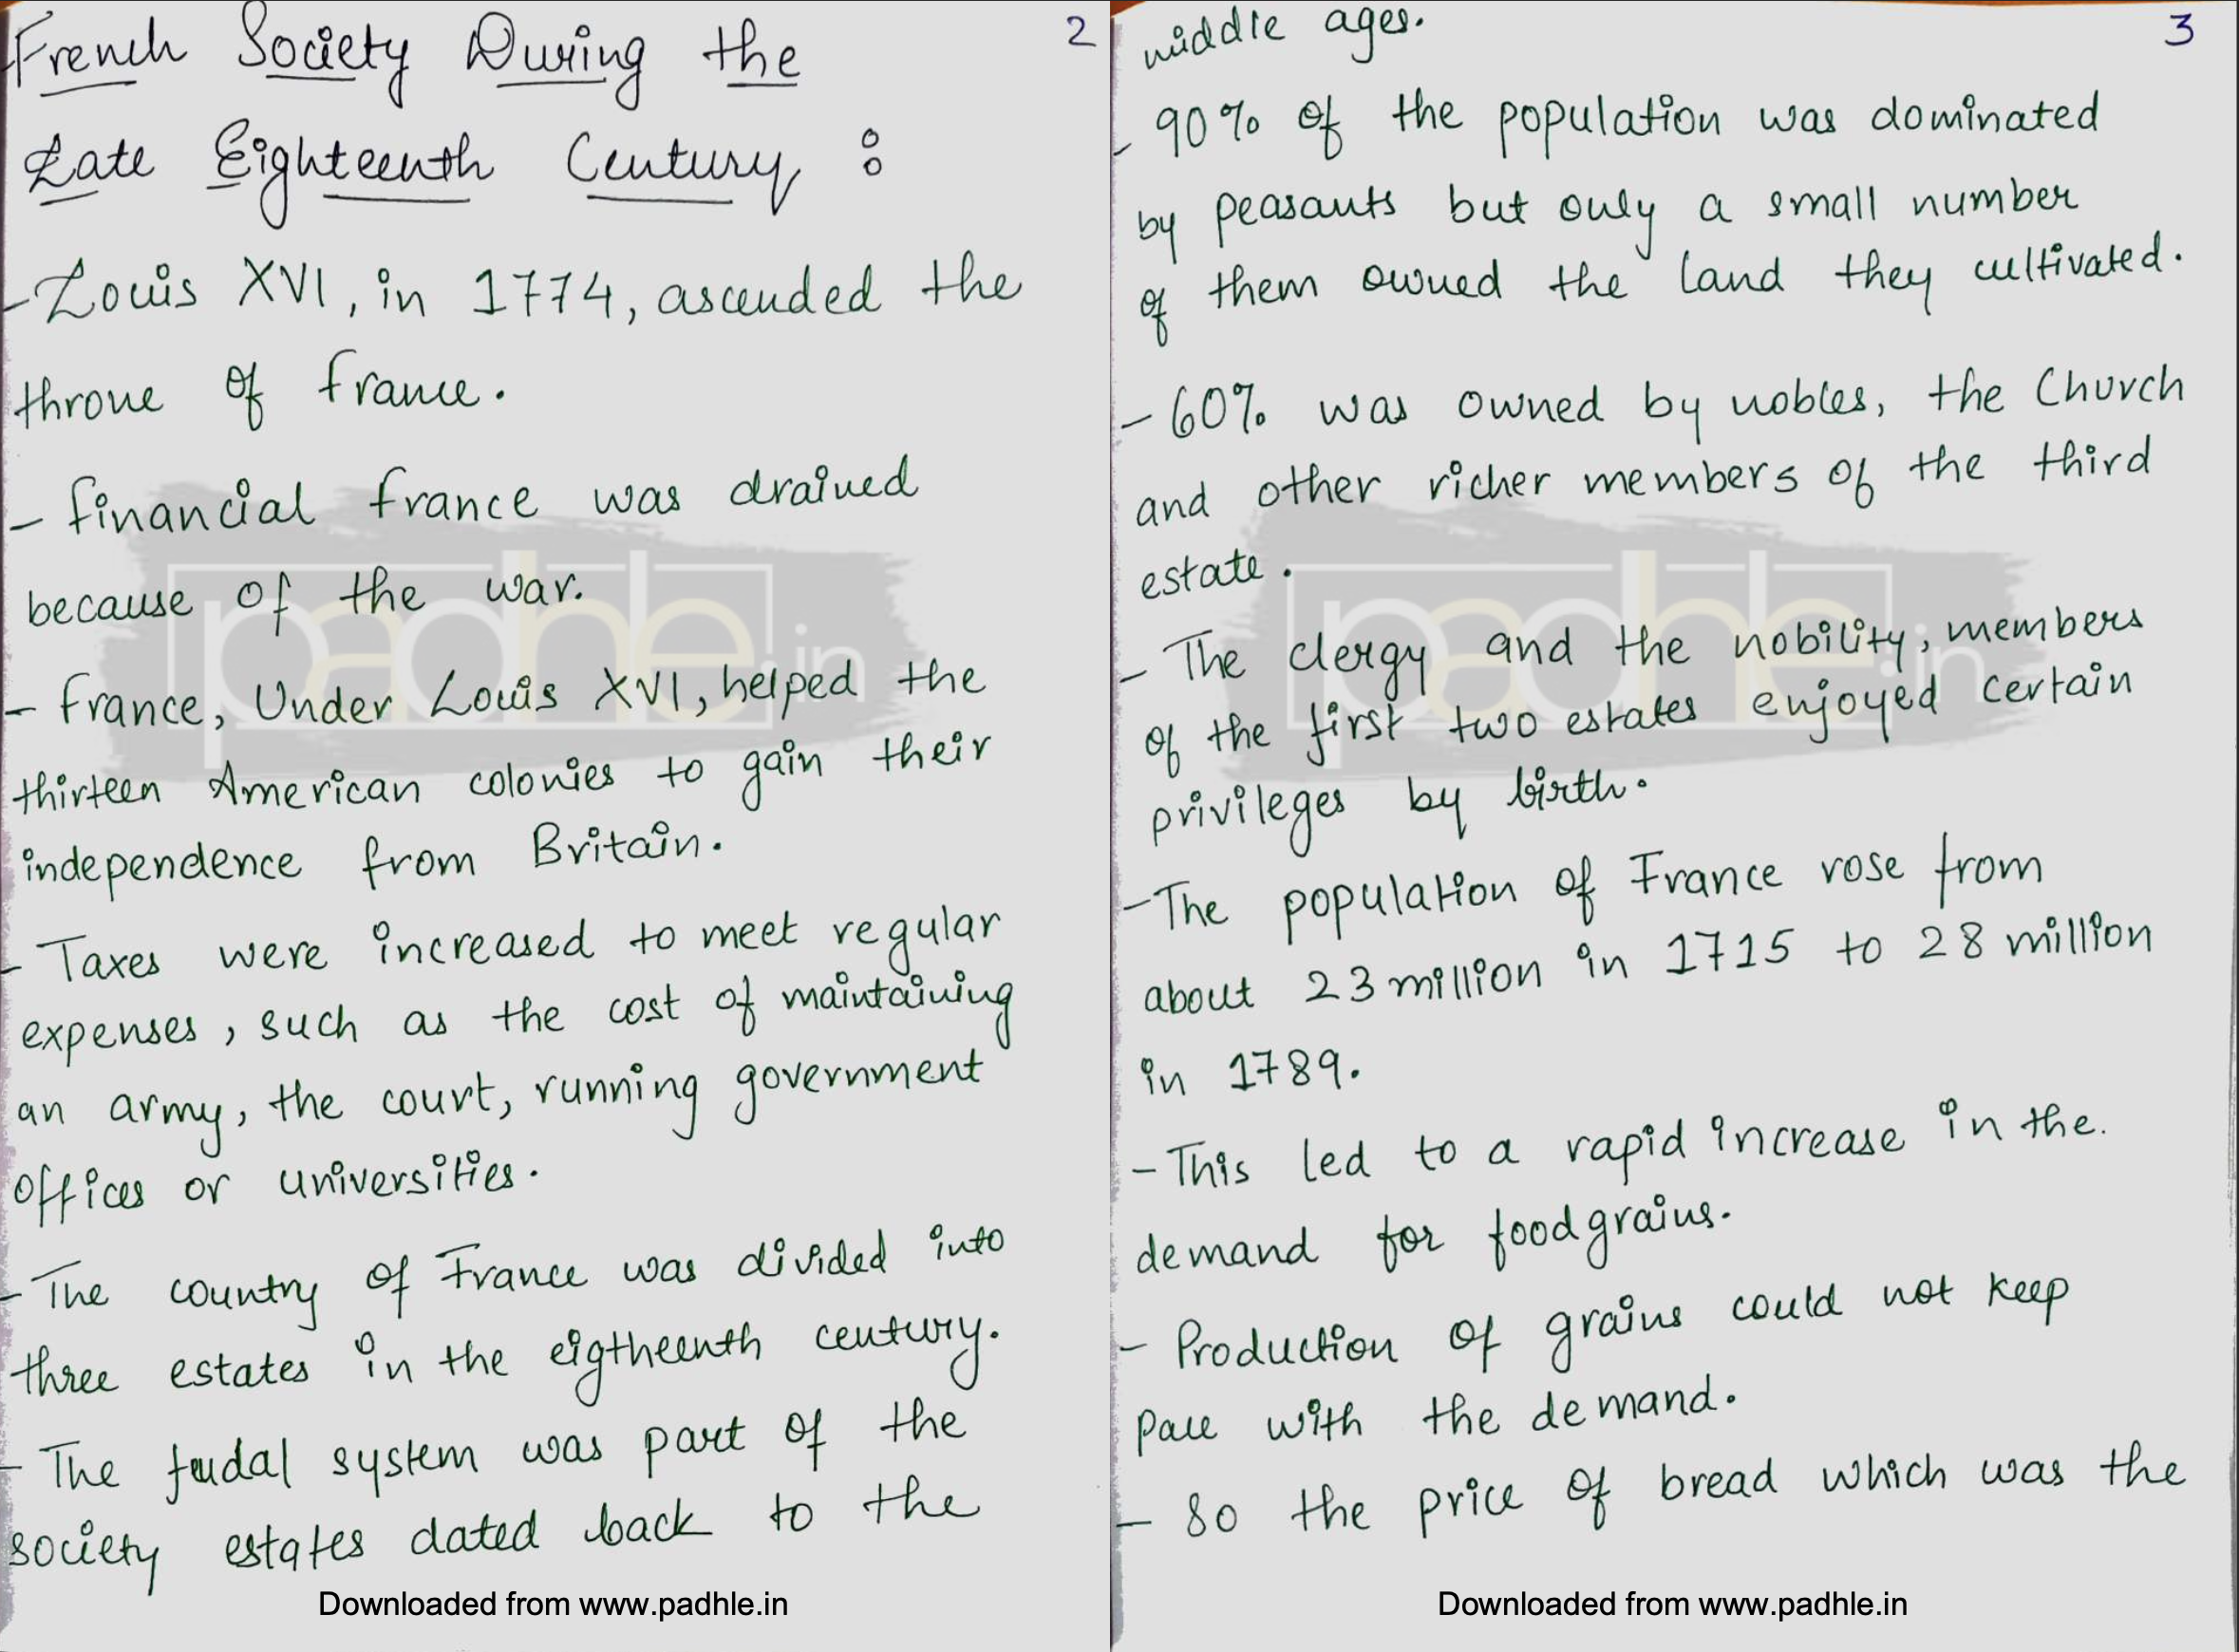 French Society During the
Late Eighteenth Century :
2
- Louis XVI, in 1774, ascended the
throne of france.
- financial france was drained
because of the war.
- france, Under Louis XVI, helped the
thirteen American colonies to gain their
independence from Britain.
- Taxes were increased to meet regular
expenses, such as the cost of maintaining
an army, the court, running government
offices or universities.
- The country of France was divided into
three estates in the eigtheenth century.
- The feudal system was part of the
society estates dated back to the
padhle.in
Downloaded from www.padhle.in
middle ages.
3
- 90% of the population was dominated
by peasants but only a small number
of them owned the land they cultivated.
- 60% was owned by nobles, the Church
and other richer members of the third
estate.
- The clergy and the nobility, members
of the first two estates enjoyed certain
privileges by birth.
- The population of France rose from
about 23 million in 1715 to 28 million
in 1789.
- This led to a rapid increase in the.
demand for foodgrains.
- Production of grains could not keep
pace with the demand.
- So the price of bread which was the
padhle.in
Downloaded from www.padhle.in